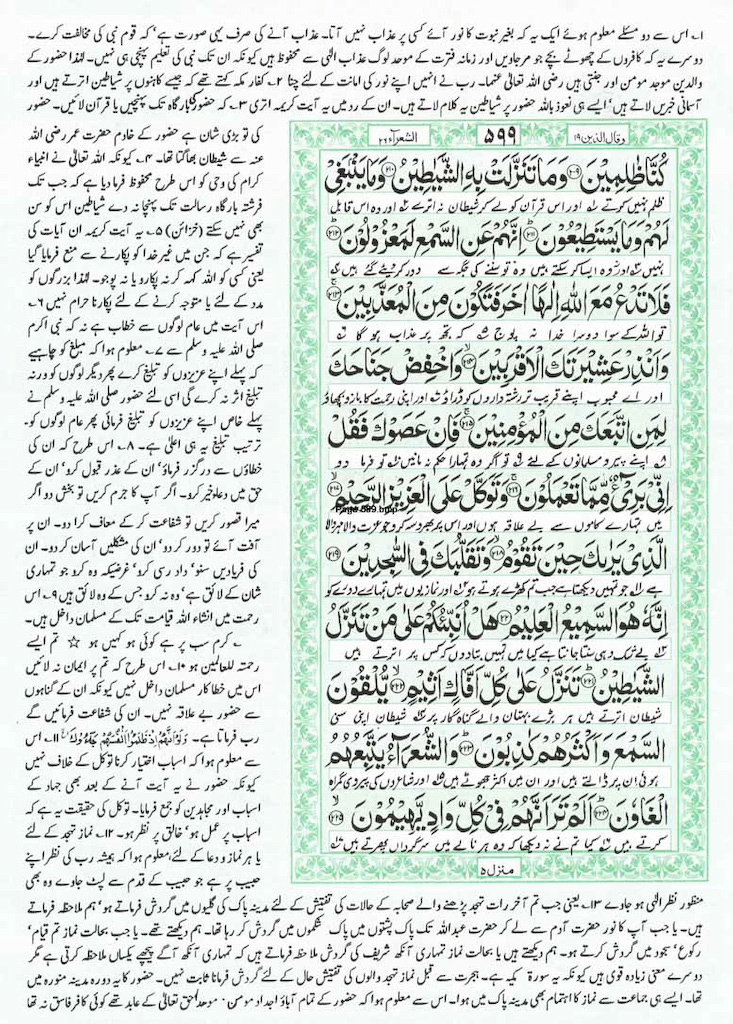 ۱۔ اس سے دو مسئلے معلوم ہوئے ایک یہ کہ بغیر نبوت کا نور آئے کسی پر عذاب نہیں آتا۔ عذاب آنے کی صرف یہی صورت ہے، کہ قوم نبی کی مخالفت کرے۔
دوسرے یہ کہ کافروں کے چھوٹے بچے جو مرجاویں اور زمانہ فترت کے موحد لوگ عذاب الٰہی سے محفوظ ہیں کیونکہ ان تک نبی کی تعلیم پہنچی ہی نہیں۔ لہٰذا حضور کے
والدین موحد مومن اور جنتی ہیں رضی اللہ تعالیٰ عنہما۔ رب نے انہیں اپنے نور کی امانت کے لئے چنا ۲۔ کفار مکہ کہتے تھے کہ جیسے کاہنوں پر شیاطین اترتے ہیں اور
آسمانی خبریں لاتے ہیں، ایسے ہی نعوذ باللہ حضور پر شیاطین یہ کلام لاتے ہیں۔ ان کے رد میں یہ آیت کریمہ اتری ۳۔ کہ حضور کی بارگاہ تک پہنچیں یا قرآن لائیں۔ حضور
کی تو بڑی شان ہے حضور کے خادم حضرت عمر رضی اللہ
عنہ سے شیطان بھاگتا تھا۔ ۴۔ کیونکہ اللہ تعالیٰ نے انبیاء
کرام کی وحی کو اس طرح محفوظ فرما دیا ہے کہ جب تک
فرشتہ بارگاہ رسالت تک پہنچا نہ دے شیاطین اس کو سن
بھی نہیں سکتے (خزائن) ۵۔ یہ آیت کریمہ ان آیات کی
تفسیر ہے کہ جن میں غیر خدا کو پکارنے سے منع فرمایا گیا
یعنی کسی کو اللہ کہہ کر نہ پکارو یا نہ پوجو۔ لہٰذا بزرگوں کو
مدد کے لئے یا متوجہ کرنے کے لئے پکارنا حرام نہیں ۶۔
اس آیت میں عام لوگوں سے خطاب ہے نہ کہ نبی اکرم
صلی اللہ علیہ وسلم سے ۷۔ معلوم ہوا کہ مبلغ کو چاہیے
کہ پہلے اپنے عزیزوں کو تبلیغ کرے پھر دیگر لوگوں کو ورنہ
تبلیغ اثر نہ کرے گی اسی لئے حضور صلی اللہ علیہ وسلم نے
پہلے خاص اپنے عزیزوں کو تبلیغ فرمائی پھر عام لوگوں کو۔
ترتیب تبلیغ یہ ہی اعلیٰ ہے۔ ۸۔ اس طرح کہ ان کی
خطاؤں سے درگزر فرماؤ، ان کے عذر قبول کرو، ان کے
حق میں دعا خیر کرو۔ اگر آپ کا جرم کریں تو بخش دو اگر
میرا قصور کریں تو شفاعت کر کے معاف کرا دو۔ ان پر
آفت آئے تو دور کر دو، ان کی مشکلیں آسان کر دو۔ ان
کی فریادیں سنو، داد رسی کرو، غرضیکہ وہ کرو جو تمہاری
شان کے لائق ہے، وہ نہ کرو جس کے وہ لائق ہیں ۹۔ اس
رحمت میں انشاء اللہ قیامت تک کے مسلمان داخل ہیں۔
کرم سب پر ہے کوئی ہو کہیں ہو ☆ تم ایسے
رحمتہ للعالمین ہو ۱۰۔ اس طرح کہ تم پر ایمان نہ لائیں
اس میں خطا کار مسلمان داخل نہیں کیونکہ ان کے گناہوں
سے حضور بے علاقہ نہیں۔ ان کی شفاعت فرمائیں گے
رب فرماتا ہے۔ وَلَوْ اَنَّهُمْ اِذْ ظَّلَمُوْٓا اَنْفُسَهُمْ جَآءُوْكَ ۱۱۔ اس
سے معلوم ہوا کہ اسباب اختیار کرنا توکل کے خلاف نہیں
کیونکہ حضور نے یہ آیت آنے کے بعد بھی جہاد کے
اسباب اور مجاہدین کو جمع فرمایا۔ توکل کی حقیقت یہ ہے کہ
اسباب پر عمل ہو، خالق پر نظر ہو۔ ۱۲۔ نماز تہجد کے لئے
یا ہر نماز و دعا کے لئے، معلوم ہوا کہ ہمیشہ رب کی نظر اپنے
حبیب پر ہے جو حبیب کے قدم سے لپٹ جاوے وہ بھی
وقال الذین ۱۹ ۵۹۹ الشعرآء ۲۶
كُنَّا ظٰلِمِيْنَ ﴿۲۰۹﴾ وَمَا تَنَزَّلَتْ بِهِ الشَّيٰطِيْنُ ﴿۲۱۰﴾ وَمَا يَنْۢبَغِيْ
ظلم نہیں کرتے اور اس قرآن کو لے کر شیطان نہ اترے اور وہ اس قابل
لَهُمْ وَمَا يَسْتَطِيْعُوْنَ ﴿۲۱۱﴾ اِنَّهُمْ عَنِ السَّمْعِ لَمَعْزُوْلُوْنَ ﴿۲۱۲﴾
نہیں اور نہ وہ ایسا کر سکتے ہیں وہ تو سننے کی جگہ سے دور کر دیئے گئے ہیں
فَلَا تَدْعُ مَعَ اللّٰهِ اِلٰهًا اٰخَرَ فَتَكُوْنَ مِنَ الْمُعَذَّبِيْنَ ﴿۲۱۳﴾
تو اللہ کے سوا دوسرا خدا نہ پوج کہ تجھ پر عذاب ہو گا
وَاَنْذِرْ عَشِيْرَتَكَ الْاَقْرَبِيْنَ ﴿۲۱۴﴾ وَاخْفِضْ جَنَاحَكَ
اور اے محبوب اپنے قریب تر رشتہ داروں کو ڈراؤ اور اپنی رحمت کا بازو بچھاؤ
لِمَنِ اتَّبَعَكَ مِنَ الْمُؤْمِنِيْنَ ﴿۲۱۵﴾ فَاِنْ عَصَوْكَ فَقُلْ
اپنے پیرو مسلمانوں کے لئے تو اگر وہ تمہارا حکم نہ مانیں تو فرما دو
اِنِّيْ بَرِيْٓءٌ مِّمَّا تَعْمَلُوْنَ ﴿۲۱۶﴾ وَتَوَكَّلْ عَلَى الْعَزِيْزِ الرَّحِيْمِ ﴿۲۱۷﴾
Page 599.bmp
میں تمہارے کاموں سے بے علاقہ ہوں اور اس پر بھروسہ کرو جو عزت والا مہر والا
الَّذِيْ يَرٰىكَ حِيْنَ تَقُوْمُ ﴿۲۱۸﴾ وَتَقَلُّبَكَ فِي السّٰجِدِيْنَ ﴿۲۱۹﴾
ہے جو تمہیں دیکھتا ہے جب تم کھڑے ہوتے ہو اور نمازیوں میں تمہارے دورے کو
اِنَّهٗ هُوَ السَّمِيْعُ الْعَلِيْمُ ﴿۲۲۰﴾ هَلْ اُنَبِّئُكُمْ عَلٰى مَنْ تَنَزَّلُ
بے شک وہی سنتا جانتا ہے کیا میں تمہیں بتا دوں کہ کس پر اترتے ہیں
الشَّيٰطِيْنُ ﴿۲۲۱﴾ تَنَزَّلُ عَلٰى كُلِّ اَفَّاكٍ اَثِيْمٍ ﴿۲۲۲﴾ يُّلْقُوْنَ
شیطان اترتے ہیں ہر بڑے بہتان والے گناہ گار پر شیطان اپنی سنی
السَّمْعَ وَاَكْثَرُهُمْ كٰذِبُوْنَ ﴿۲۲۳﴾ وَالشُّعَرَآءُ يَتَّبِعُهُمُ
ہوئی ان پر ڈالتے ہیں اور ان میں اکثر جھوٹے ہیں اور شاعروں کی پیروی گمراہ
الْغَاوٗنَ ﴿۲۲۴﴾ اَلَمْ تَرَ اَنَّهُمْ فِيْ كُلِّ وَادٍ يَّهِيْمُوْنَ ﴿۲۲۵﴾
کرتے ہیں کیا تم نے نہ دیکھا کہ وہ ہر نالے میں سرگرداں پھرتے ہیں
منزل ۵
منظور نظر الٰہی ہو جاوے ۱۳۔ یعنی جب تم آخر رات تہجد پڑھنے والے صحابہ کے حالات کی تفتیش کے لئے مدینہ پاک کی گلیوں میں گردش فرماتے ہو، ہم ملاحظہ فرماتے
ہیں۔ یا جب آپ کا نور حضرت آدم سے لے کر حضرت عبداللہ تک پاک پشتوں میں پاک شکموں میں گردش کر رہا تھا۔ ہم دیکھتے تھے۔ یا جب بحالت نماز تم قیام،
رکوع، سجود میں گردش کرتے ہو۔ ہم دیکھتے ہیں یا بحالت نماز تمہاری آنکھ شریف کی گردش ملاحظہ فرماتے ہیں کہ تمہاری آنکھ آگے پیچھے یکساں ملاحظہ کرتی ہے مگر
دوسرے معنی زیادہ قوی ہیں کیونکہ یہ سورۃ مکیہ ہے۔ ہجرت سے قبل نماز تہجد والوں کی تفتیش حال کے لئے گردش فرمانا ثابت نہیں۔ حضور کا یہ دورہ مدینہ منورہ میں
تھا۔ ایسے ہی جماعت سے نماز کا اہتمام بھی مدینہ پاک میں ہوا۔ اس سے معلوم ہوا کہ حضور کے تمام آباؤ اجداد مومن، موحد حق تعالیٰ کے عابد تھے کوئی کافر فاسق نہ تھا